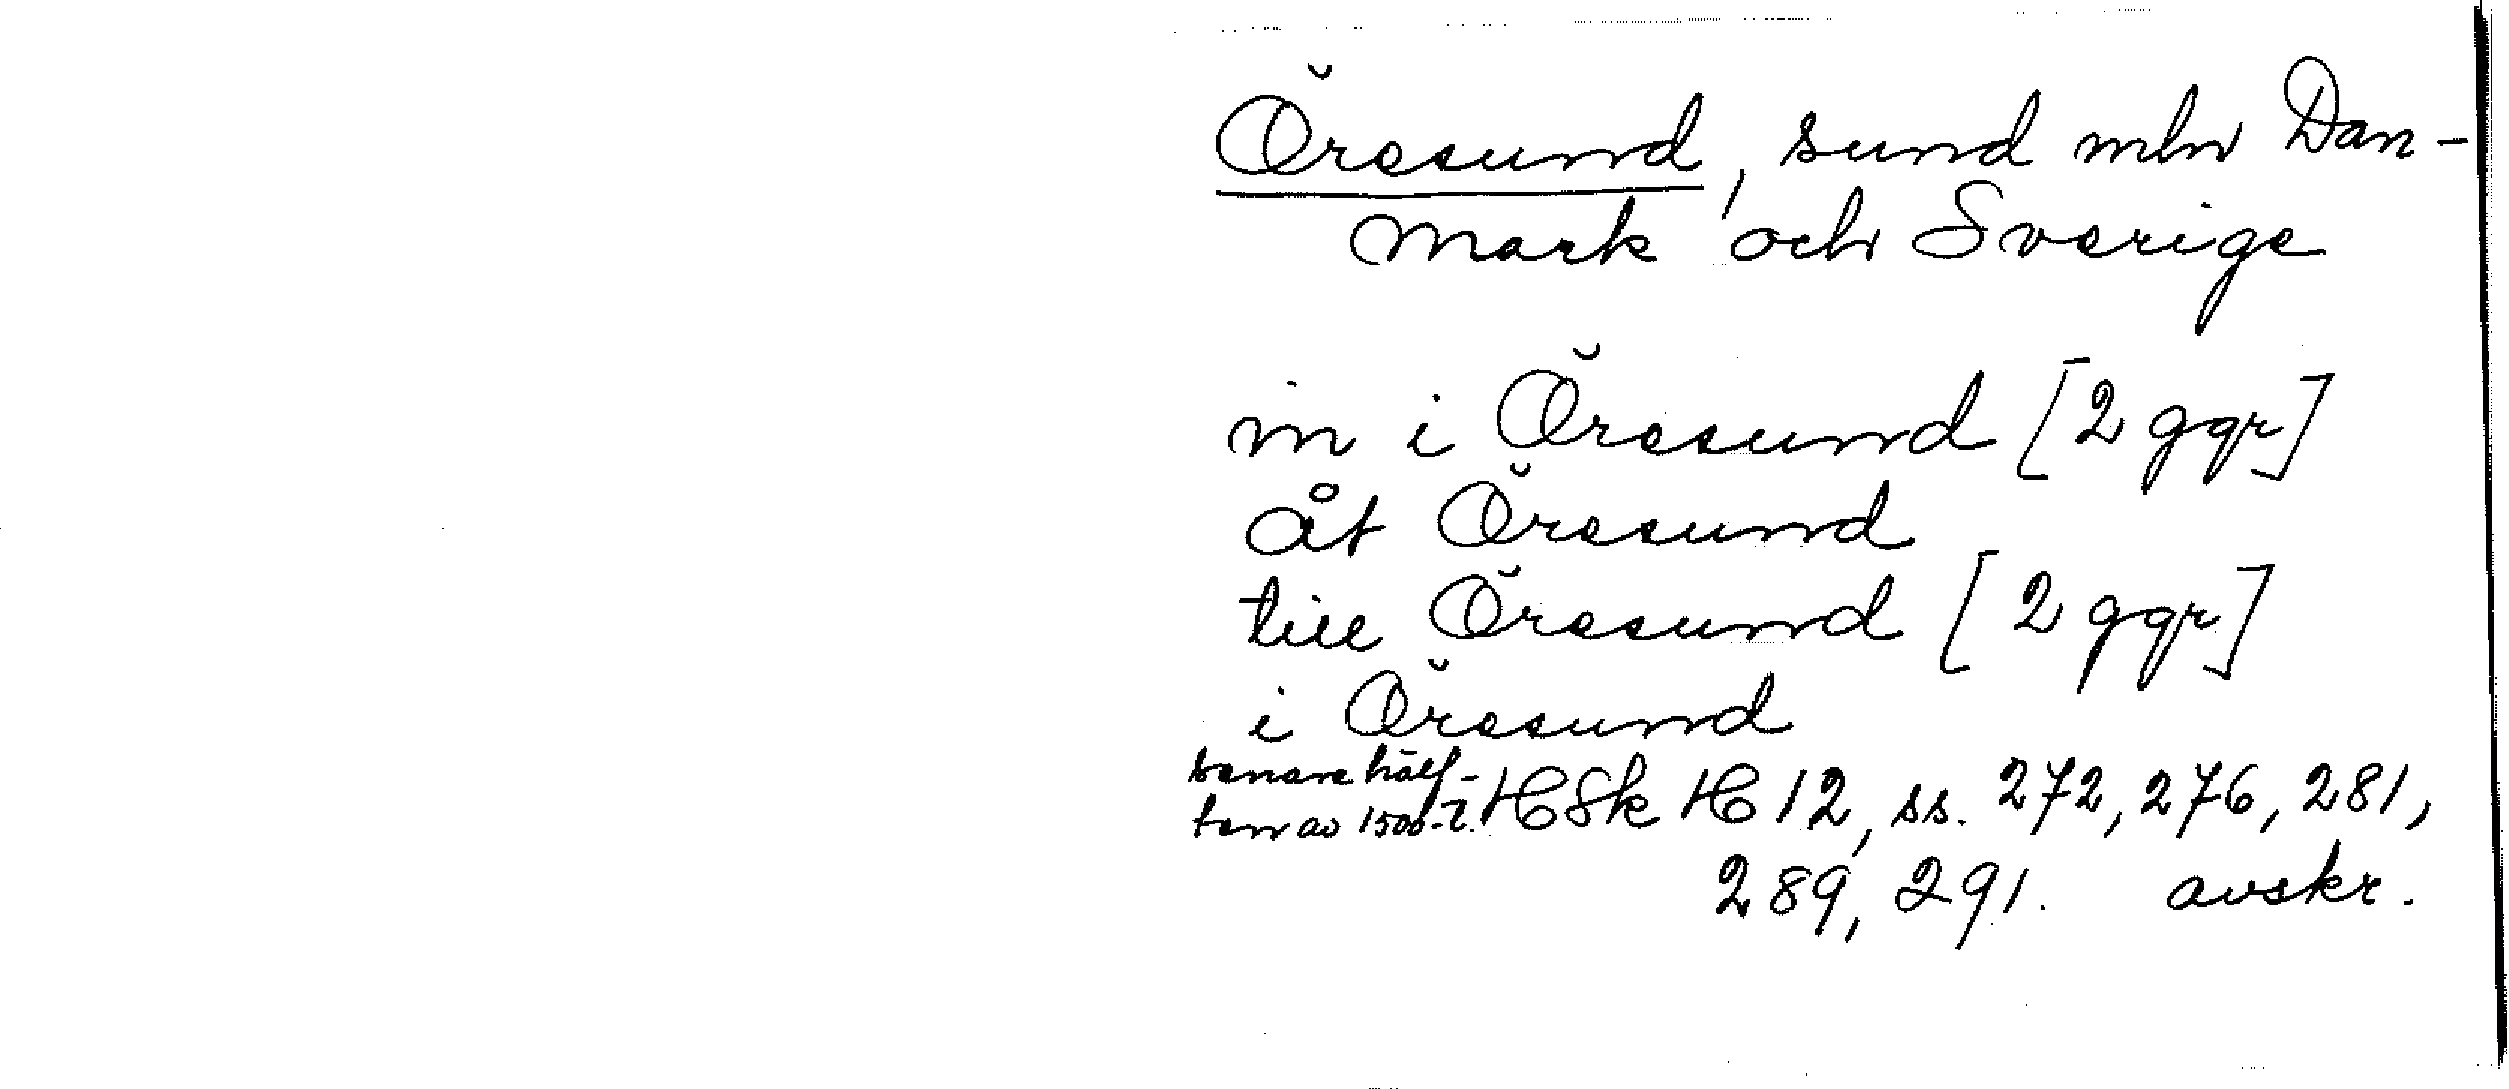 Öresund, sund mln Dan-
mark och Sverige
in i Öresund [2 ggr]
åt Öresund
till Öresund [2 ggr]
i Öresund
senare hälf-
ten av 1500-t. HSk H 12, ss. 272, 276, 281,
289, 291. avskr.